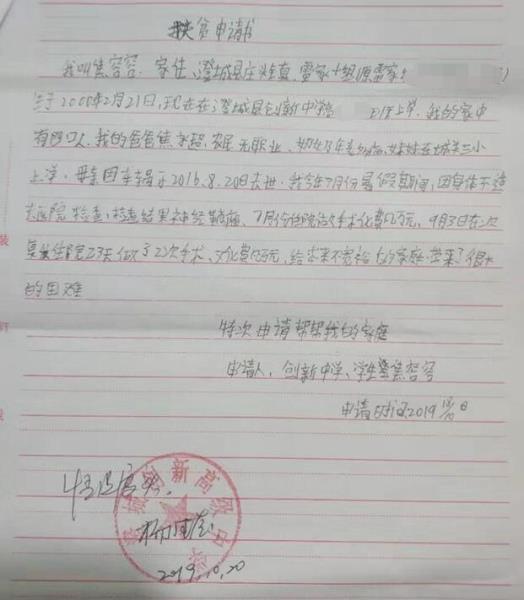 扶贫申请书
我叫焦容容.家住.澄城县庄头镇.雷家十组源雷家
生于2000年2月21日,现在在澄城县创新中学 上学.我的家中
有四口人.我的爸爸焦 超.农民无职业、奶奶年老 .妹妹在城关三小
上学.母亲因车祸于2016.8.20日去世.我今年7月份暑假期间,因身体不适
去医院检查,检查结果神经鞘瘤、7月份住院治 手术花费 万元,9月3日在次
复发住院23天做了2次手术、 花费 万元,给本来不宽裕的家庭带来了很大
的困难
特次申请帮帮我的家庭
申请人:创新中学、学生 焦容容
申请时间2019 日
情况属实.
创新高级中学
2019.10.20